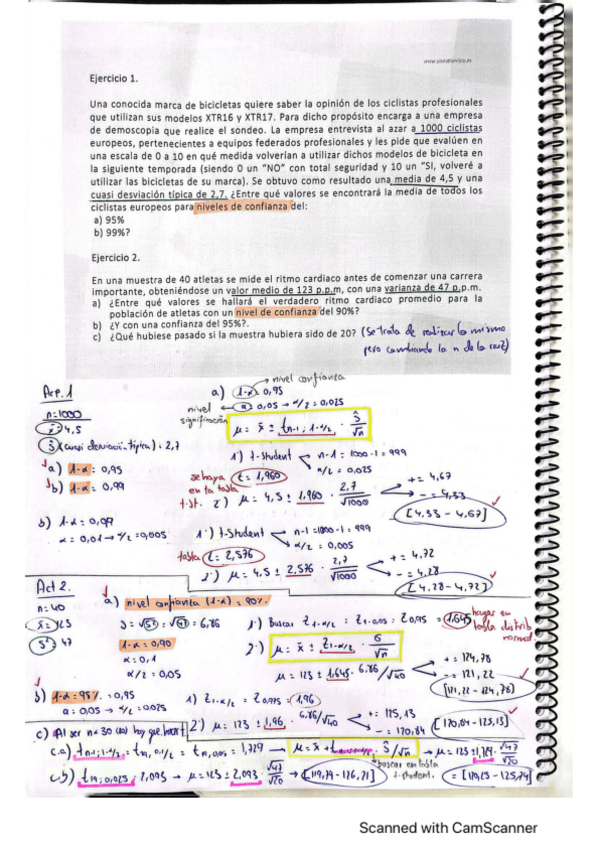 www.planafamilia.es
Ejercicio 1.
Una conocida marca de bicicletas quiere saber la opinión de los ciclistas profesionales
que utilizan sus modelos XTR16 y XTR17. Para dicho propósito encarga a una empresa
de demoscopia que realice el sondeo. La empresa entrevista al azar a 1000 ciclistas
europeos, pertenecientes a equipos federados profesionales y les pide que evalúen en
una escala de 0 a 10 en qué medida volverían a utilizar dichos modelos de bicicleta en
la siguiente temporada (siendo 0 un "NO" con total seguridad y 10 un "SI, volveré a
utilizar las bicicletas de su marca). Se obtuvo como resultado una media de 4,5 y una
cuasi desviación típica de 2,7. ¿Entre qué valores se encontrará la media de todos los
ciclistas europeos para niveles de confianza del:
a) 95%
b) 99%?
Ejercicio 2.
En una muestra de 40 atletas se mide el ritmo cardiaco antes de comenzar una carrera
importante, obteniéndose un valor medio de 123 p.p.m, con una varianza de 47 p.p.m.
a) ¿Entre qué valores se hallará el verdadero ritmo cardiaco promedio para la
población de atletas con un nivel de confianza del 90%?
b) ¿Y con una confianza del 95%?.
c) ¿Qué hubiese pasado si la muestra hubiera sido de 20? (Se trata de realizar lo mismo
pero cambiando la n de la raíz)
Act. 1
n=1000
x̄ = 4,5
Ŝ (cuasi desviación típica) = 2,7
a) 1-α = 0,95
b) 1-α = 0,99
a) 1-α = 0,95 → nivel confianza
nivel significación ← α = 0,05 → α/2 = 0,025
μ = x̄ ± t n-1; 1-α/2 · Ŝ/√n
1º) t-student n-1 = 1000-1 = 999
α/2 = 0,025
se haya en la tabla t-st. t = 1,960
2º) μ = 4,5 ± 1,960 · 2,7/√1000
+ = 4,67
- = 4,33
[4,33 - 4,67]
b) 1-α = 0,99
α = 0,01 → α/2 = 0,005
1º) t-student n-1 = 1000-1 = 999
α/2 = 0,005
tabla t = 2,576
2º) μ = 4,5 ± 2,576 · 2,7/√1000
+ = 4,72
- = 4,28
[4,28 - 4,72]
Act 2.
n = 40
x̄ = 123
S² = 47
a) nivel confianza (1-α) = 90%
S = √S² = √47 = 6,86
1-α = 0,90
α = 0,1
α/2 = 0,05
1º) Buscar Z 1-α/2 = Z 1-0,05 = Z 0,95 = 1,645 hayar en tabla distrib normal.
2º) μ = x̄ ± Z 1-α/2 · σ/√n
μ = 123 ± 1,645 · 6,86/√40
+ = 124,78
- = 121,22
[121,22 - 124,78]
b) 1-α = 95% = 0,95
α = 0,05 → α/2 = 0,025
1) Z 1-α/2 = Z 0,975 = 1,96
2º) μ = 123 ± 1,96 · 6,86/√40
+ = 125,13
- = 120,84
[120,84 - 125,13]
c) Al ser n < 30 hay que
c.a) t n-1; 1-α/2 = t 19, 0,1/2 = t 19, 0,05 = 1,729 → μ = x̄ ± t · Ŝ/√n → μ = 123 ± 1,729 · √47/√20
buscar en tabla t-student.
c.b) t 19; 0,025 = 2,093 → μ = 123 ± 2,093 · √47/√20 → [119,79 - 126,21]
= [120,25 - 125,74]
Scanned with CamScanner